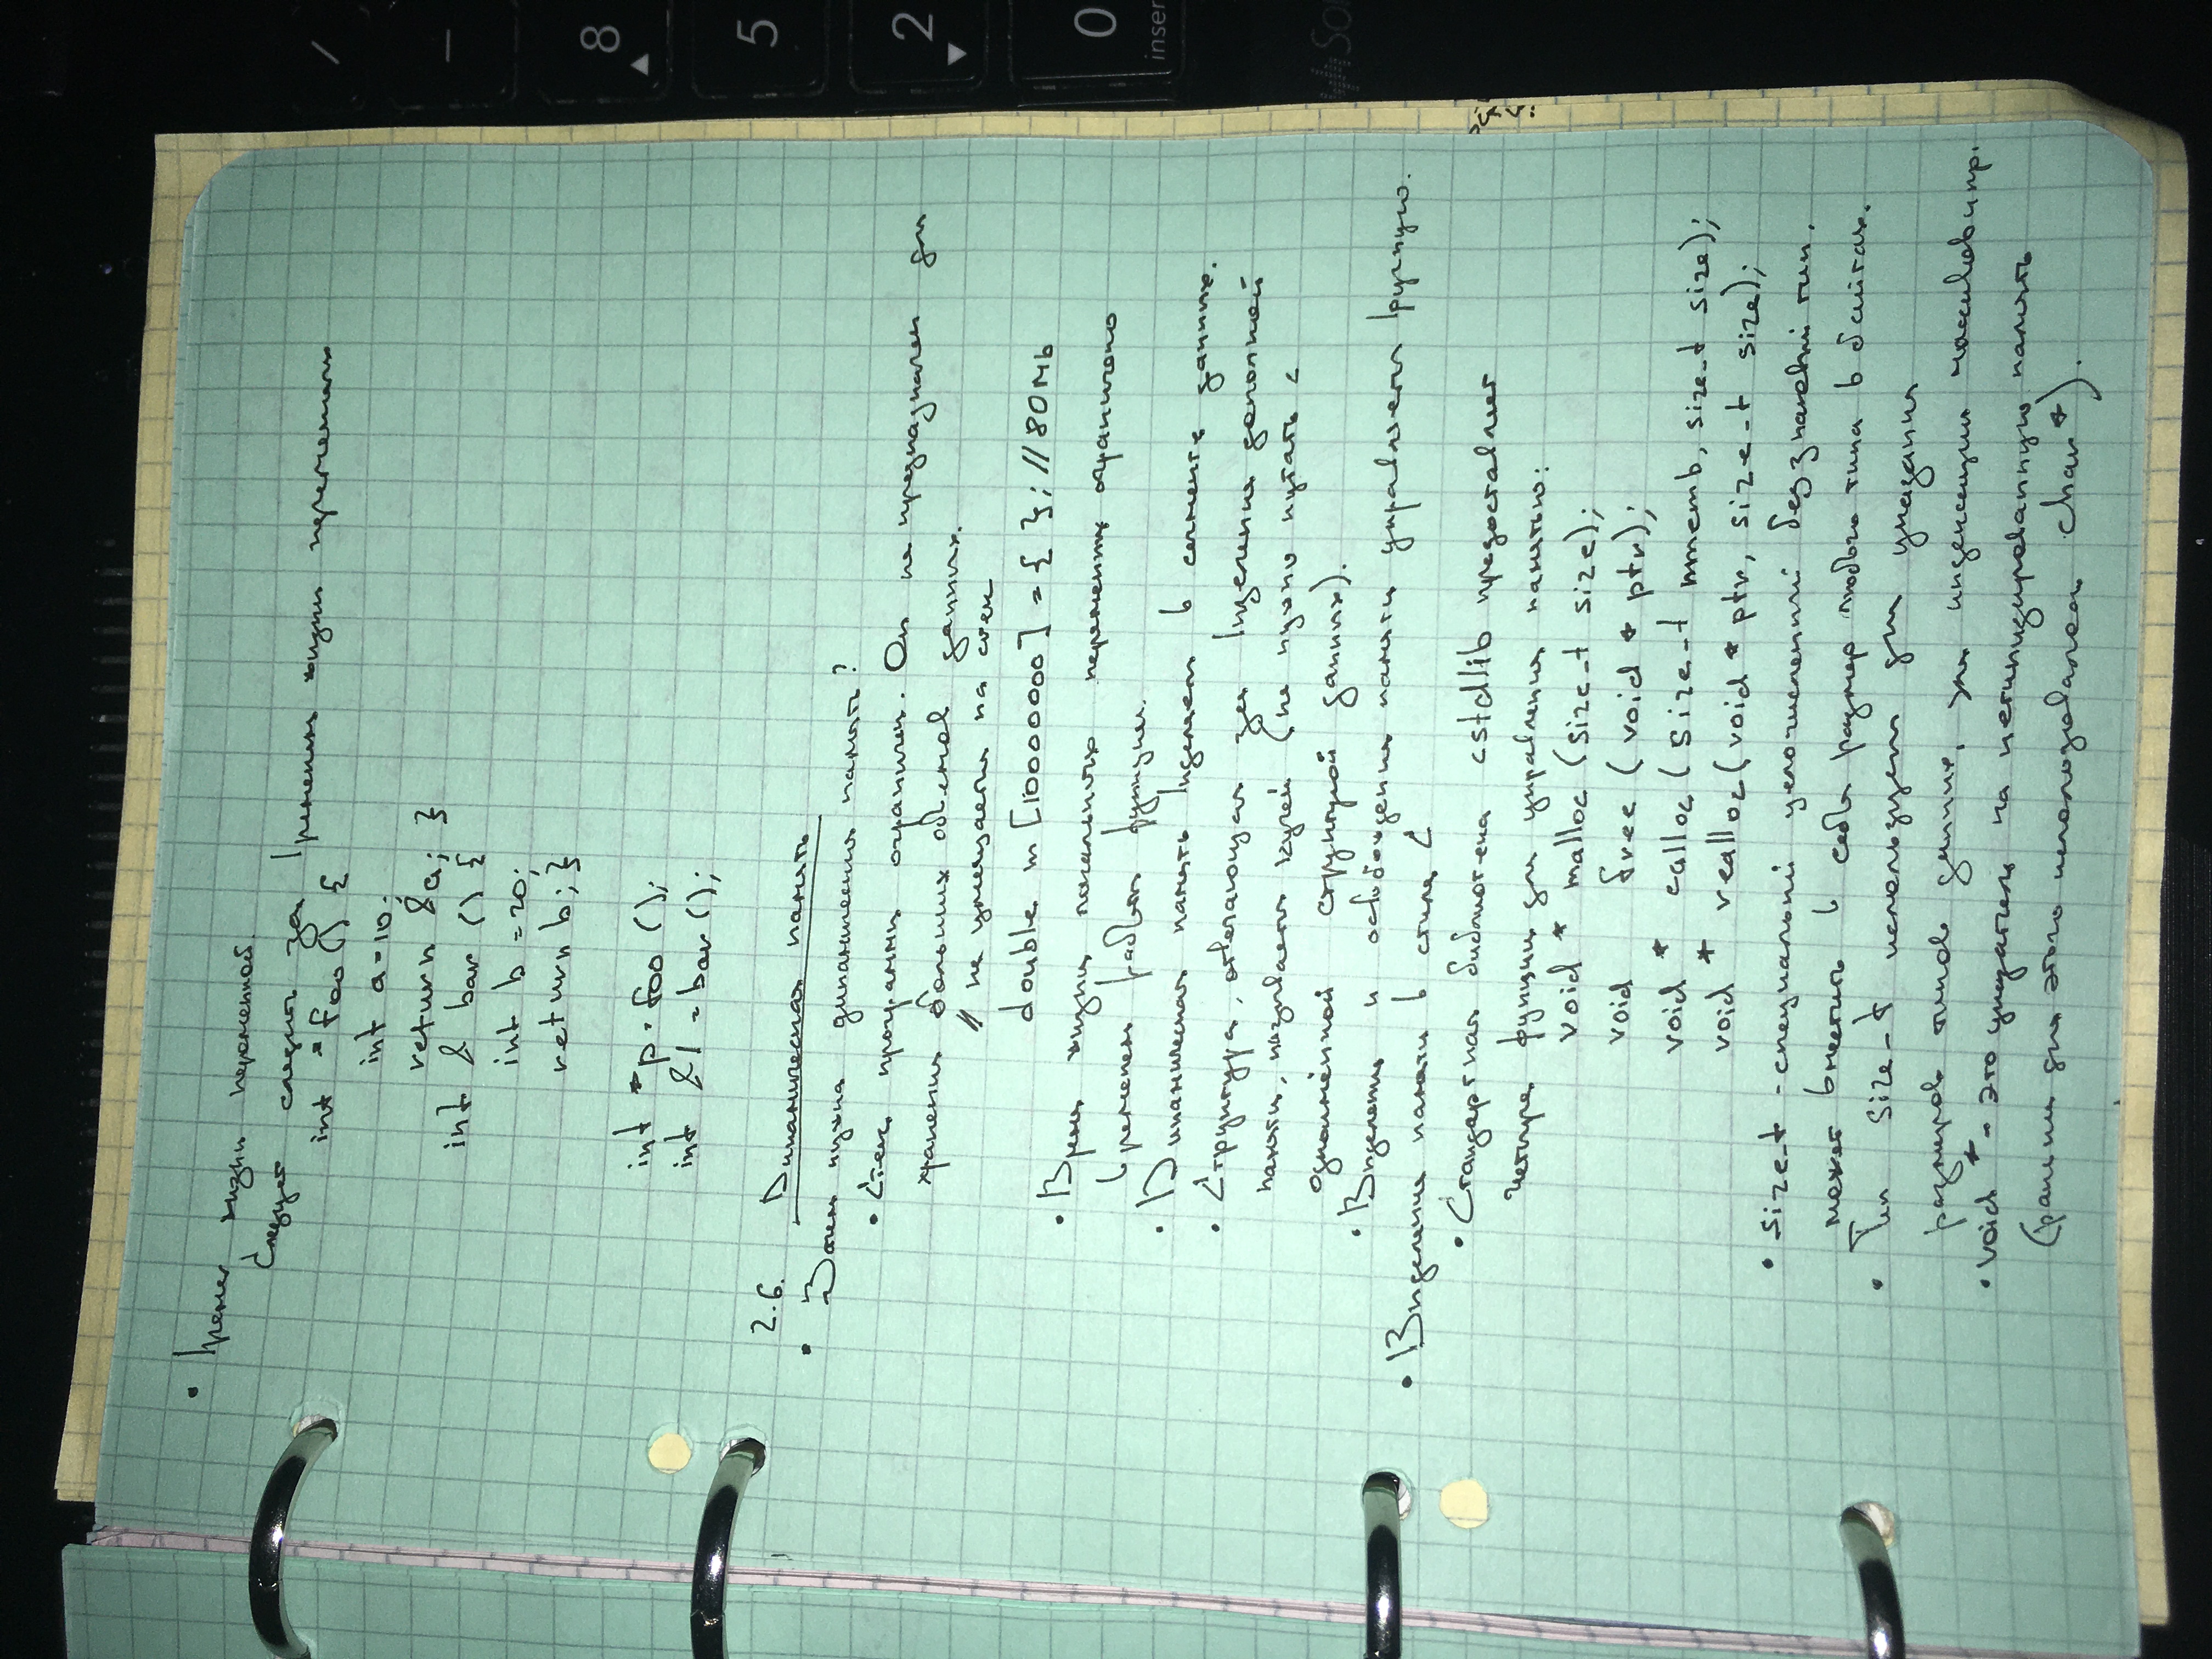 • Время жизни переменной.
Следует следить за временем жизни переменных
int *foo() {
int a=10;
return &a; }
int & bar () {
int b = 20;
return b; }
int *p = foo ();
int &l = bar ();
2.6. Динамическая память
• Зачем нужна динамическая память?
• Стек программы ограничен. Он не предназначен для
хранения больших объемов данных.
// не умещается на стек
double m [10000000] = { }; // 80 Mb
• Время жизни локальных переменных ограничено
временем работы функции.
• Динамическая память выделяется в сегменте данных.
• Структура, отвечающая за выделение
памяти, называется кучей (не нужно путать с
одноимённой структурой данных).
• Выделение и освобождение памяти управляется вручную.
• Выделение памяти в стиле C
• Стандартная библиотека cstdlib предоставляет
четыре функции для управления памятью:
void * malloc (size_t size);
void free ( void * ptr);
void * calloc ( size_t nmemb, size_t size);
void * realloc( void * ptr, size_t size);
• size_t - специальный целочисленный беззнаковый тип.
может вместить в себя размер любого типа в байтах.
• Тип size_t используется для указания
размеров типов данных, для индексации массивов и пр.
• void * - это указатель на нетипизированную память
(раньше для этого использовалось char *).
/
–
8
5
2
0
inser
So